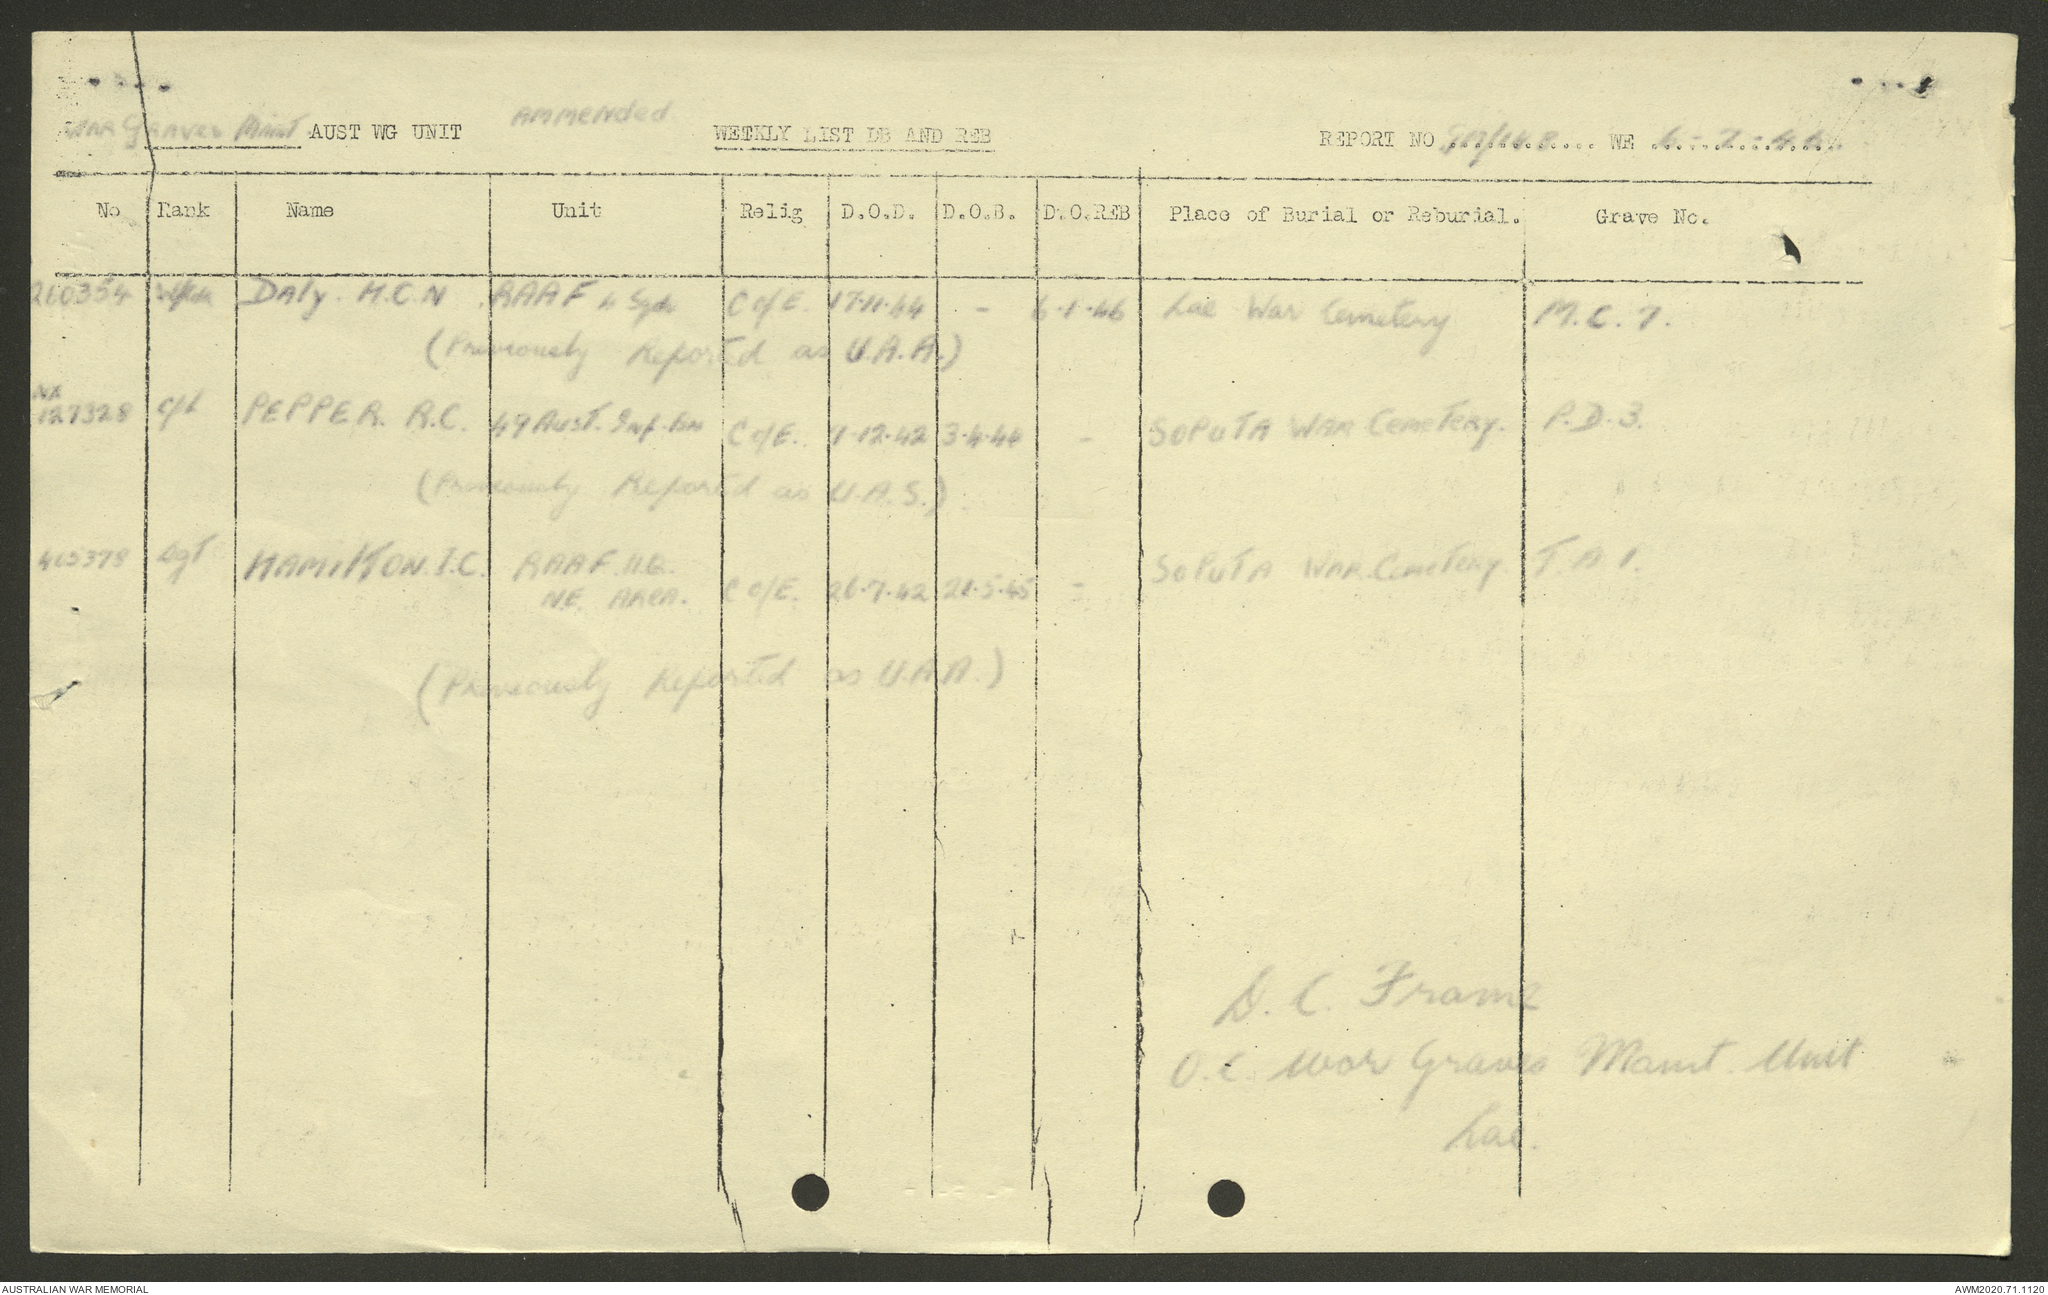 War Graves Maint AUST WG UNIT Ammended WEEKLY LIST DB AND REB REPORT NO WE
No Rank Name Unit Relig D.O.D. D.O.B. D.O.REB Place of Burial or Reburial. Grave No.
260354 Daly. H.C.N RAAF C of E. 17.11.44 - 6.1.46 Lae War Cemetery M.C.7.
(Previously Reported as U.A.A.)
NX
127328 Cpl PEPPER. R.C. 49 Aust. Inf. Bn C of E. 1.12.42 3.4.44 - SOPUTA WAR Cemetery. P.D.3.
(Previously Reported as U.A.S.)
405378 Sgt HAMILTON. I.C. RAAF. H.Q. SOPUTA WAR Cemetery T.A.1.
N.E. AREA. C of E. 26.7.42 21.5.45 -
(Previously Reported as U.A.A.)
D. C. Frame
O.C. War Graves Maint. Unit
Lae.
AUSTRALIAN WAR MEMORIAL AWM2020.71.1120